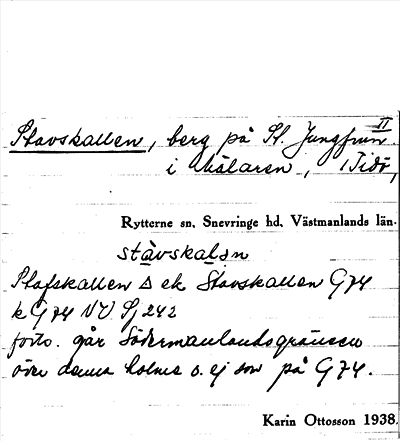 II
Stavskallen, berg på St. Jungfrun
i Mälaren, Tidö,
Rytterne sn, Snevringe hd, Västmanlands län.
stävskalən
Stafskallen Δ ek Stavskallen G74
k G74 NV Sj 242
forts. går Södermanlandsgränsen
över denna holme o. ej som på G74.
Karin Ottosson 1938.